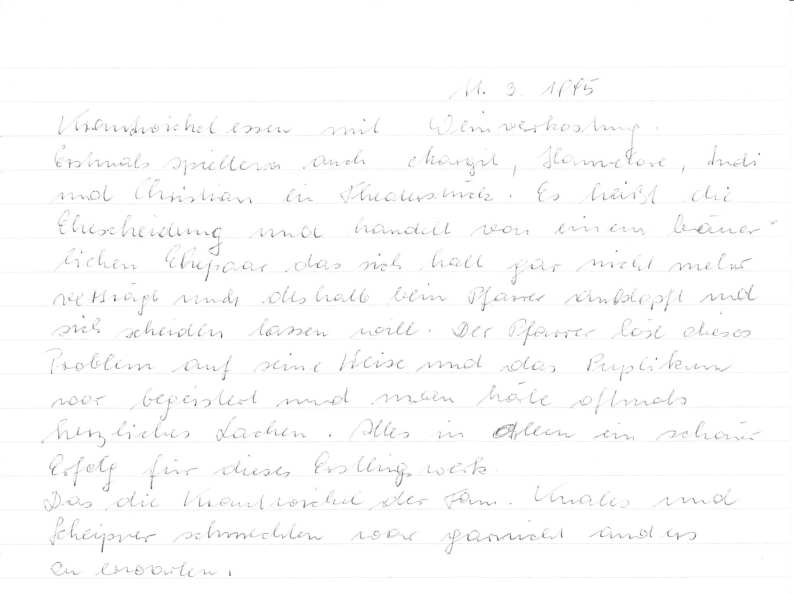 11. 3. 1995
Krautwickel essen mit Weinverkostung.
Erstmals spielten auch Margit, Hannelore, Andi
und Christian ein Theaterstück. Es heißt die
Ehescheidung und handelt von einem bäuer-
lichen Ehepaar das sich halt gar nicht mehr
verträgt und deshalb beim Pfarrer anklopft und
sich scheiden lassen will. Der Pfarrer löst dieses
Problem auf seine Weise und das Puplikum
war begeistert und man hörte oftmals
herzliches Lachen. Alles in Allem ein schöner
Erfolg für dieses Erstlingswerk.
Das die Krautwickel der Fam. und
schmeckten war garnicht anders
zu erwarten.